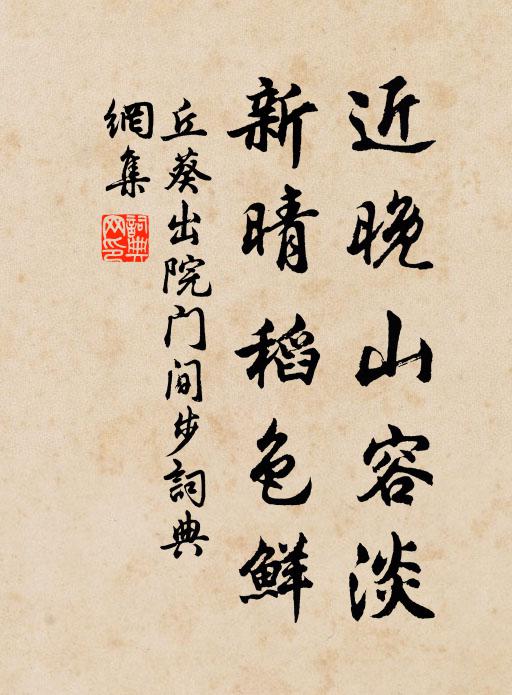 近晚山容淡
新晴稻色鮮
丘葵出院门间步詞典
網集
詞典
网印